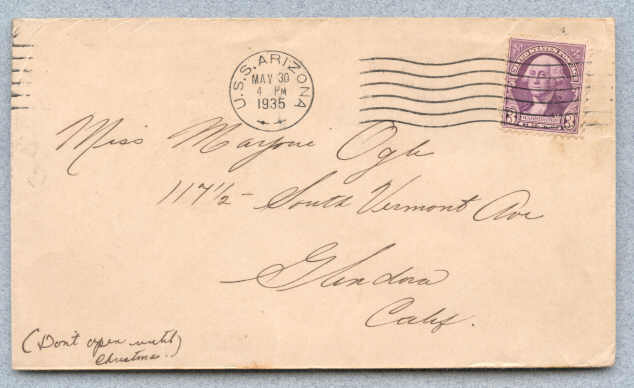 U.S.S. ARIZONA
MAY 30
4 PM
1935
UNITED STATES POSTAGE
3 WASHINGTON 3
Miss Marjorie Ogle
117½ - South Vermont Ave
Glendora
Calif.
(Don't open until
Christmas.)